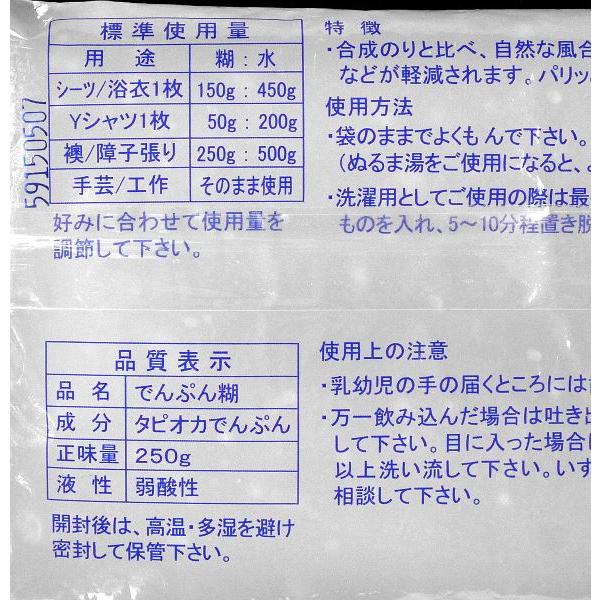 標準使用量
用 途 糊:水
シーツ/浴衣1枚 150g:450g
Yシャツ1枚 50g:200g
襖/障子張り 250g:500g
手芸/工作 そのまま使用
好みに合わせて使用量を
調節して下さい。
59150507
品質表示
品 名 でんぷん糊
成 分 タピオカでんぷん
正味量 250g
液 性 弱酸性
開封後は、高温・多湿を避け
密封して保管下さい。
特 徴
・合成のりと比べ、自然な風合
などが軽減されます。パリッ
使用方法
・袋のままでよくもんで下さい。
(ぬるま湯をご使用になると、よ
・洗濯用としてご使用の際は最
ものを入れ、5〜10分程置き脱
使用上の注意
・乳幼児の手の届くところには
・万一飲み込んだ場合は吐き出
して下さい。目に入った場合
以上洗い流して下さい。いす
相談して下さい。